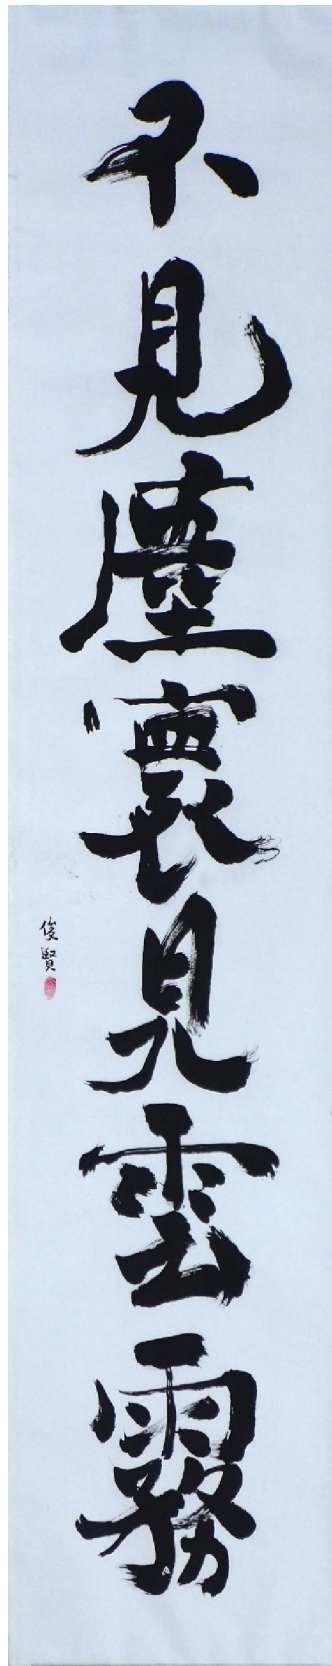 不見塵寰見雲霧
俊賢